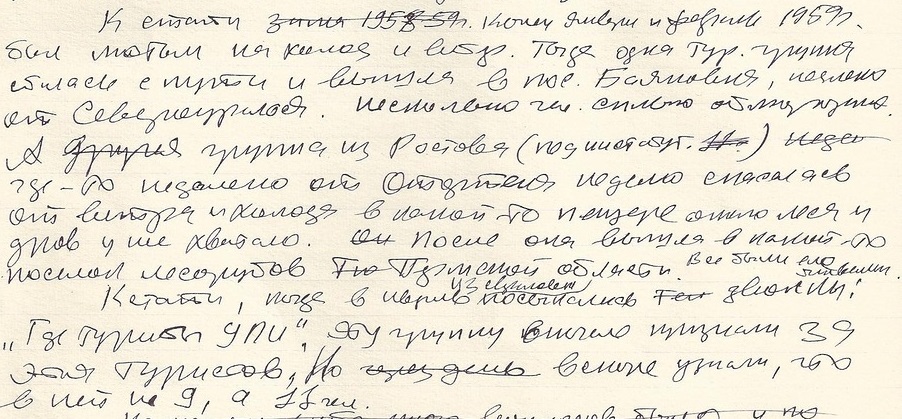 Кстати зима 1958-59г. Конец января и февраль 1959г.
был лютым на холод и ветр. Тогда одна тур. группа
сбилась с пути и вышла в пос. Бояновка, недалеко
от Североуральска. Несколько чел. сильно обморожены.
А другая группа из Ростова (пединститут. ) неде
где-то недалеко от Отортена неделю спасалась
от ветра и холода в какой-то пещере около леса и
дров у них хватало. Он После она вышла в какой-то
поселок лесорубов Пермской области. Все были
Кстати, когда в из Свердловска посыпались звонки:
„Где туристы УПИ“, эту группу вначале признали за
этих туристов, Но через день вскоре узнали, что
в ней не 9, а 11 чел.